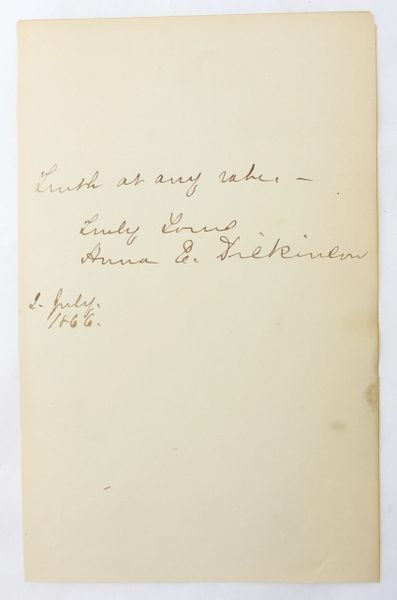 Truth at any rate. —
Truly Yours
Anna E. Dickinson
2. July.
1866.